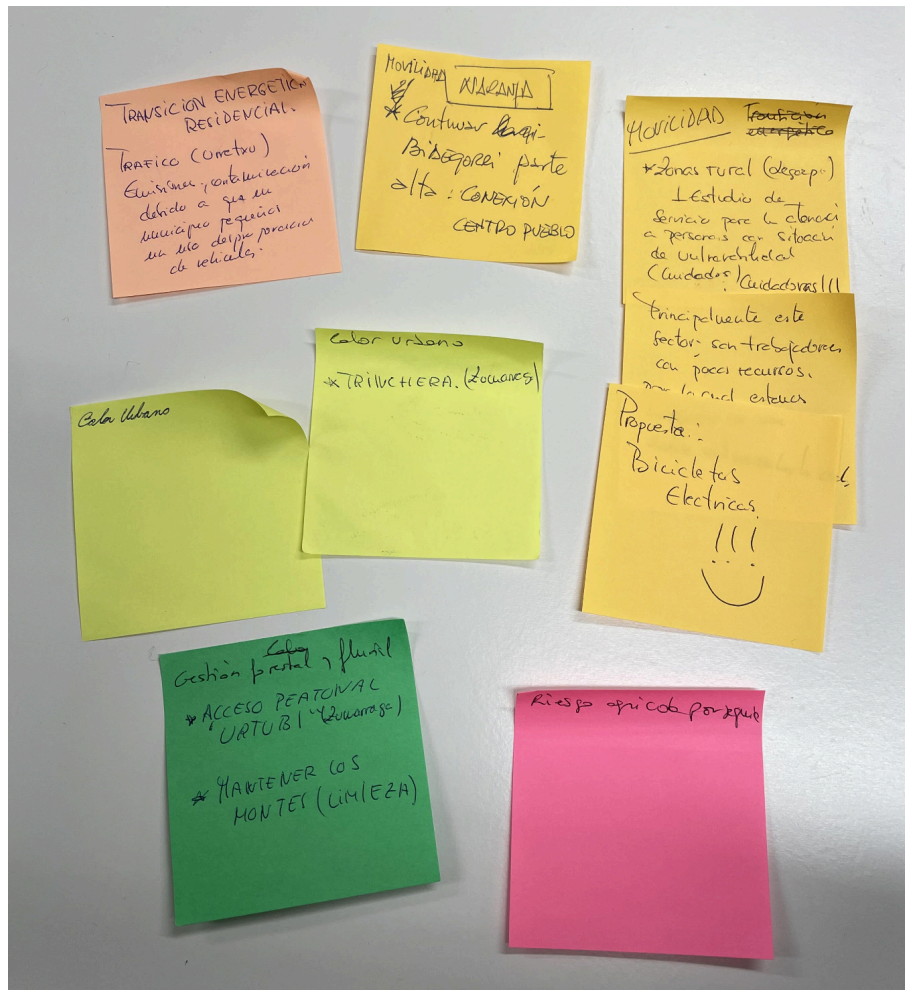 TRANSICION ENERGETICA
RESIDENCIAL.
TRAFICO (Urretxu)
Emisiones y contaminación
debido a que en
municipios pequeños
un uso
de vehiculos.
MOVILIDAD NARANJA
* Continuar
BiDEGORRi parte
alta: CONEXIÓN
CENTRO PUEBLO
MOVILIDAD Transición
energética
* Zonas rural
1 Estudio de
Servicio para la atención
a personas con situación
de vulnerabilidad
(Cuidados/Cuidadoras!!!
Principalmente este
sector son trabajadores
con pocos recursos.
por lo cual
Propuesta:
Bicicletas
Electricas
!!!
Calor urbano
* TRINCHERA. (Zumarraga)
Calor Urbano
Gestión forestal y fluvial
* ACCESO PEATONAL
"URTUBI" (Zumarraga)
* MANTENER LOS
MONTES (LIMIEZA)
Riesgo agricola por sequia